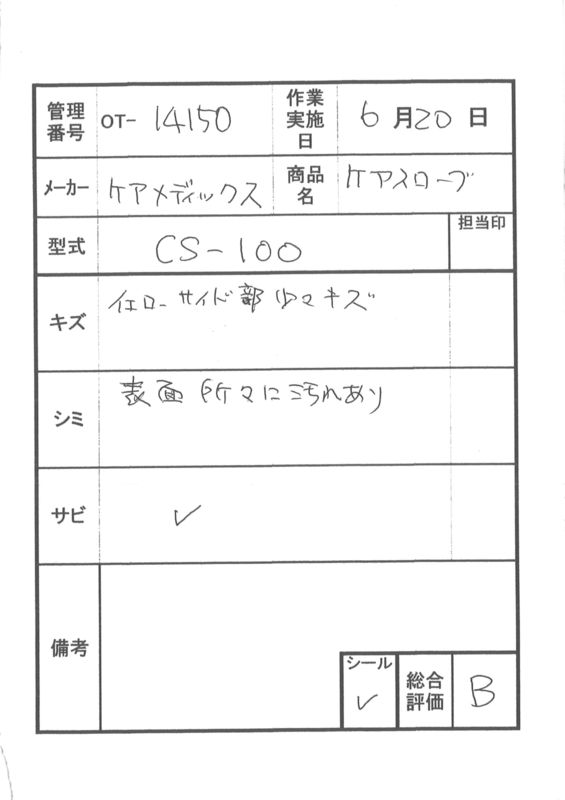 管理番号 OT- 14150 作業実施日 6月20日
メーカー ケアメディックス 商品名 ケアスロープ
型式 CS-100 担当印
キズ イエローサイド部 少々キズ
シミ 表面所々に汚れあり
サビ ✓
備考
シール ✓ 総合評価 B